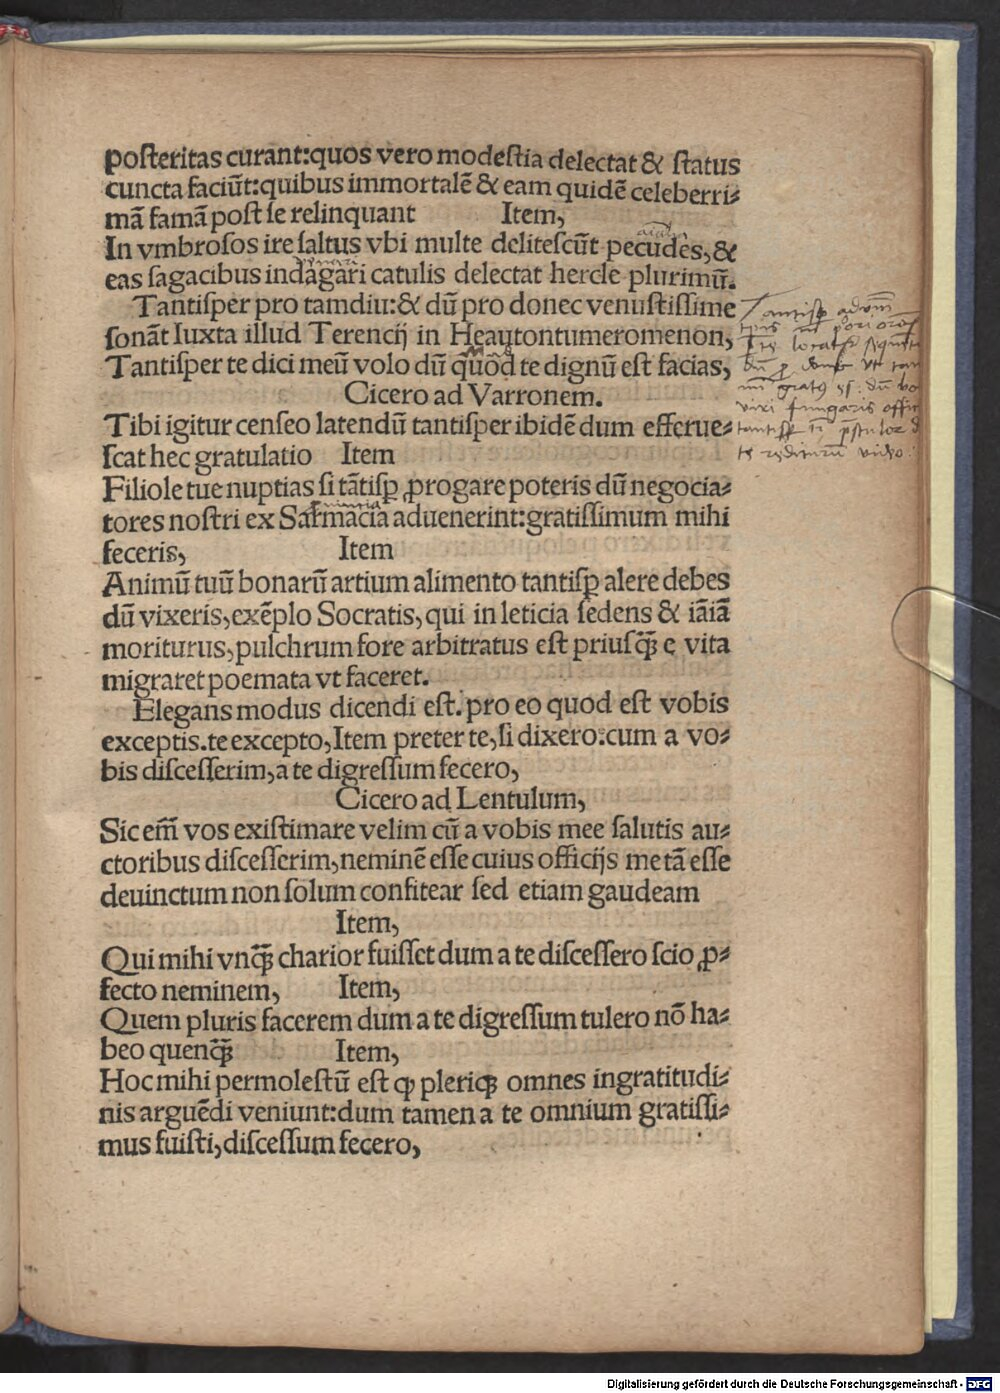 poſteritas curant:quos vero modeſtia delectat & ſtatus
cuncta faciūt:quibus immortalē & eam quidē celeberri⸗
mā famā poſt ſe relinquant Item,
In vmbroſos ire ſaltus vbi multe deliteſcūt pecudes,&
eas ſagacibus indagari catulis delectat hercle plurimū.
Tantiſper pro tamdiu:& dū pro donec venuſtiſſime
ſonāt Iuxta illud Terencij in Heaytontumeromenon,
Tantiſper te dici meū volo dū quod te dignū eſt facias,
Cicero ad Varronem.
Tibi igitur cenſeo latendū tantiſper ibidē dum efferue⸗
ſcat hec gratulatio Item
Filiole tue nuptias ſi tātiſꝑ ꝓrogare poteris dū negocia⸗
tores noſtri ex Sarmacia aduenerint:gratiſſimum mihi
feceris, Item
Animū tuū bonarū artium alimento tantiſꝑ alere debes
dū vixeris,exēplo Socratis,qui in leticia ſedens & iāiā
moriturus,pulchrum fore arbitratus eſt priuſꝙ̄ e vita
migraret poemata vt faceret.
Elegans modus dicendi eſt.pro eo quod eſt vobis
exceptis.te excepto,Item preter te,ſi dixero:cum a vo⸗
bis diſceſſerim,a te digreſſum fecero,
Cicero ad Lentulum,
Sic em̄ vos exiſtimare velim cū a vobis mee ſalutis au⸗
ctoribus diſceſſerim,neminē eſſe cuius officijs me tā eſſe
deuinctum non ſolum confitear ſed etiam gaudeam
Item,
Qui mihi vnꝙ̄ charior fuiſſet dum a te diſceſſero ſcio ꝓ⸗
fecto neminem, Item,
Quem pluris facerem dum a te digreſſum tulero nō ha⸗
beo quenꝙ̄ Item,
Hoc mihi permoleſtū eſt ꝙ pleriqꝫ omnes ingratitudi⸗
nis arguēdi veniunt:dum tamen a te omnium gratiſſi⸗
mus fuiſti,diſceſſum fecero,
Digitalisierung gefördert durch die Deutsche Forschungsgemeinschaft - DFG